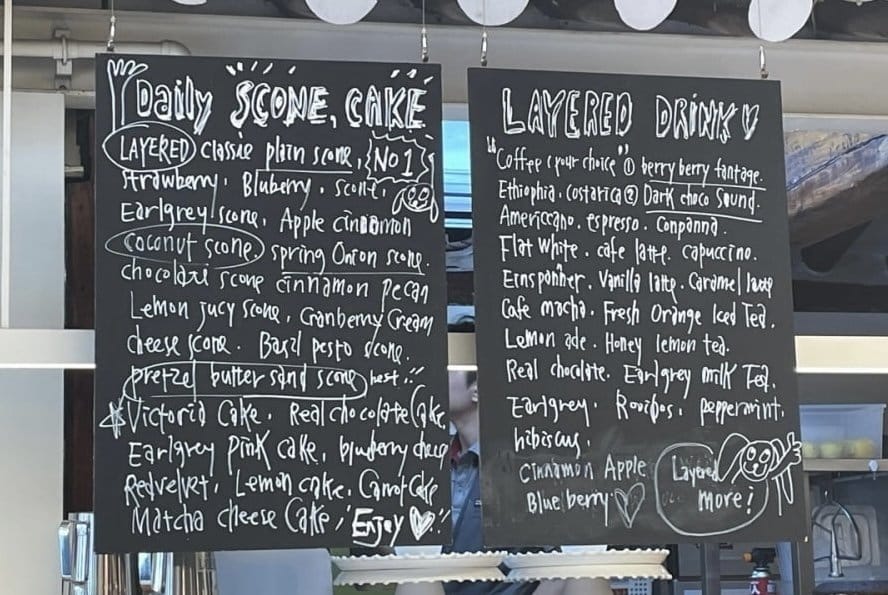 Daily SCONE, CAKE
LAYERED classic plain scone, No 1
strawberry. Bluberry. scone.
Earlgrey scone, Apple cinnamon
coconut scone, spring Onion scone.
chocolate scone cinnamon pecan
Lemon jucy scone, Cranberry Cream
cheese scone. Basil pesto scone.
pretzel butter sand scone best!!
Victoria Cake. Real chocolate Cake,
Earlgrey pink cake, bluberry cheese
Redvelvet, Lemon cake, Carrot Cake
Matcha cheese Cake, "Enjoy"
LAYERED DRINK
"Coffee (your choice)" ① berry berry fantage.
Ethiophia. Costarica ② Dark choco Sound.
Americcano. espresso. Conpanna.
Flat White. cafe latte. capuccino.
Einspanner. Vanilla latte. Caramel latte
Cafe macha. Fresh Orange Iced Tea.
Lemon ade. Honey lemon tea.
Real chocolate. Earlgrey milk Tea.
Earlgrey. Rooibos. peppermint.
hibiscus.
Cinnamon Apple
Blue berry.
Layered
more!